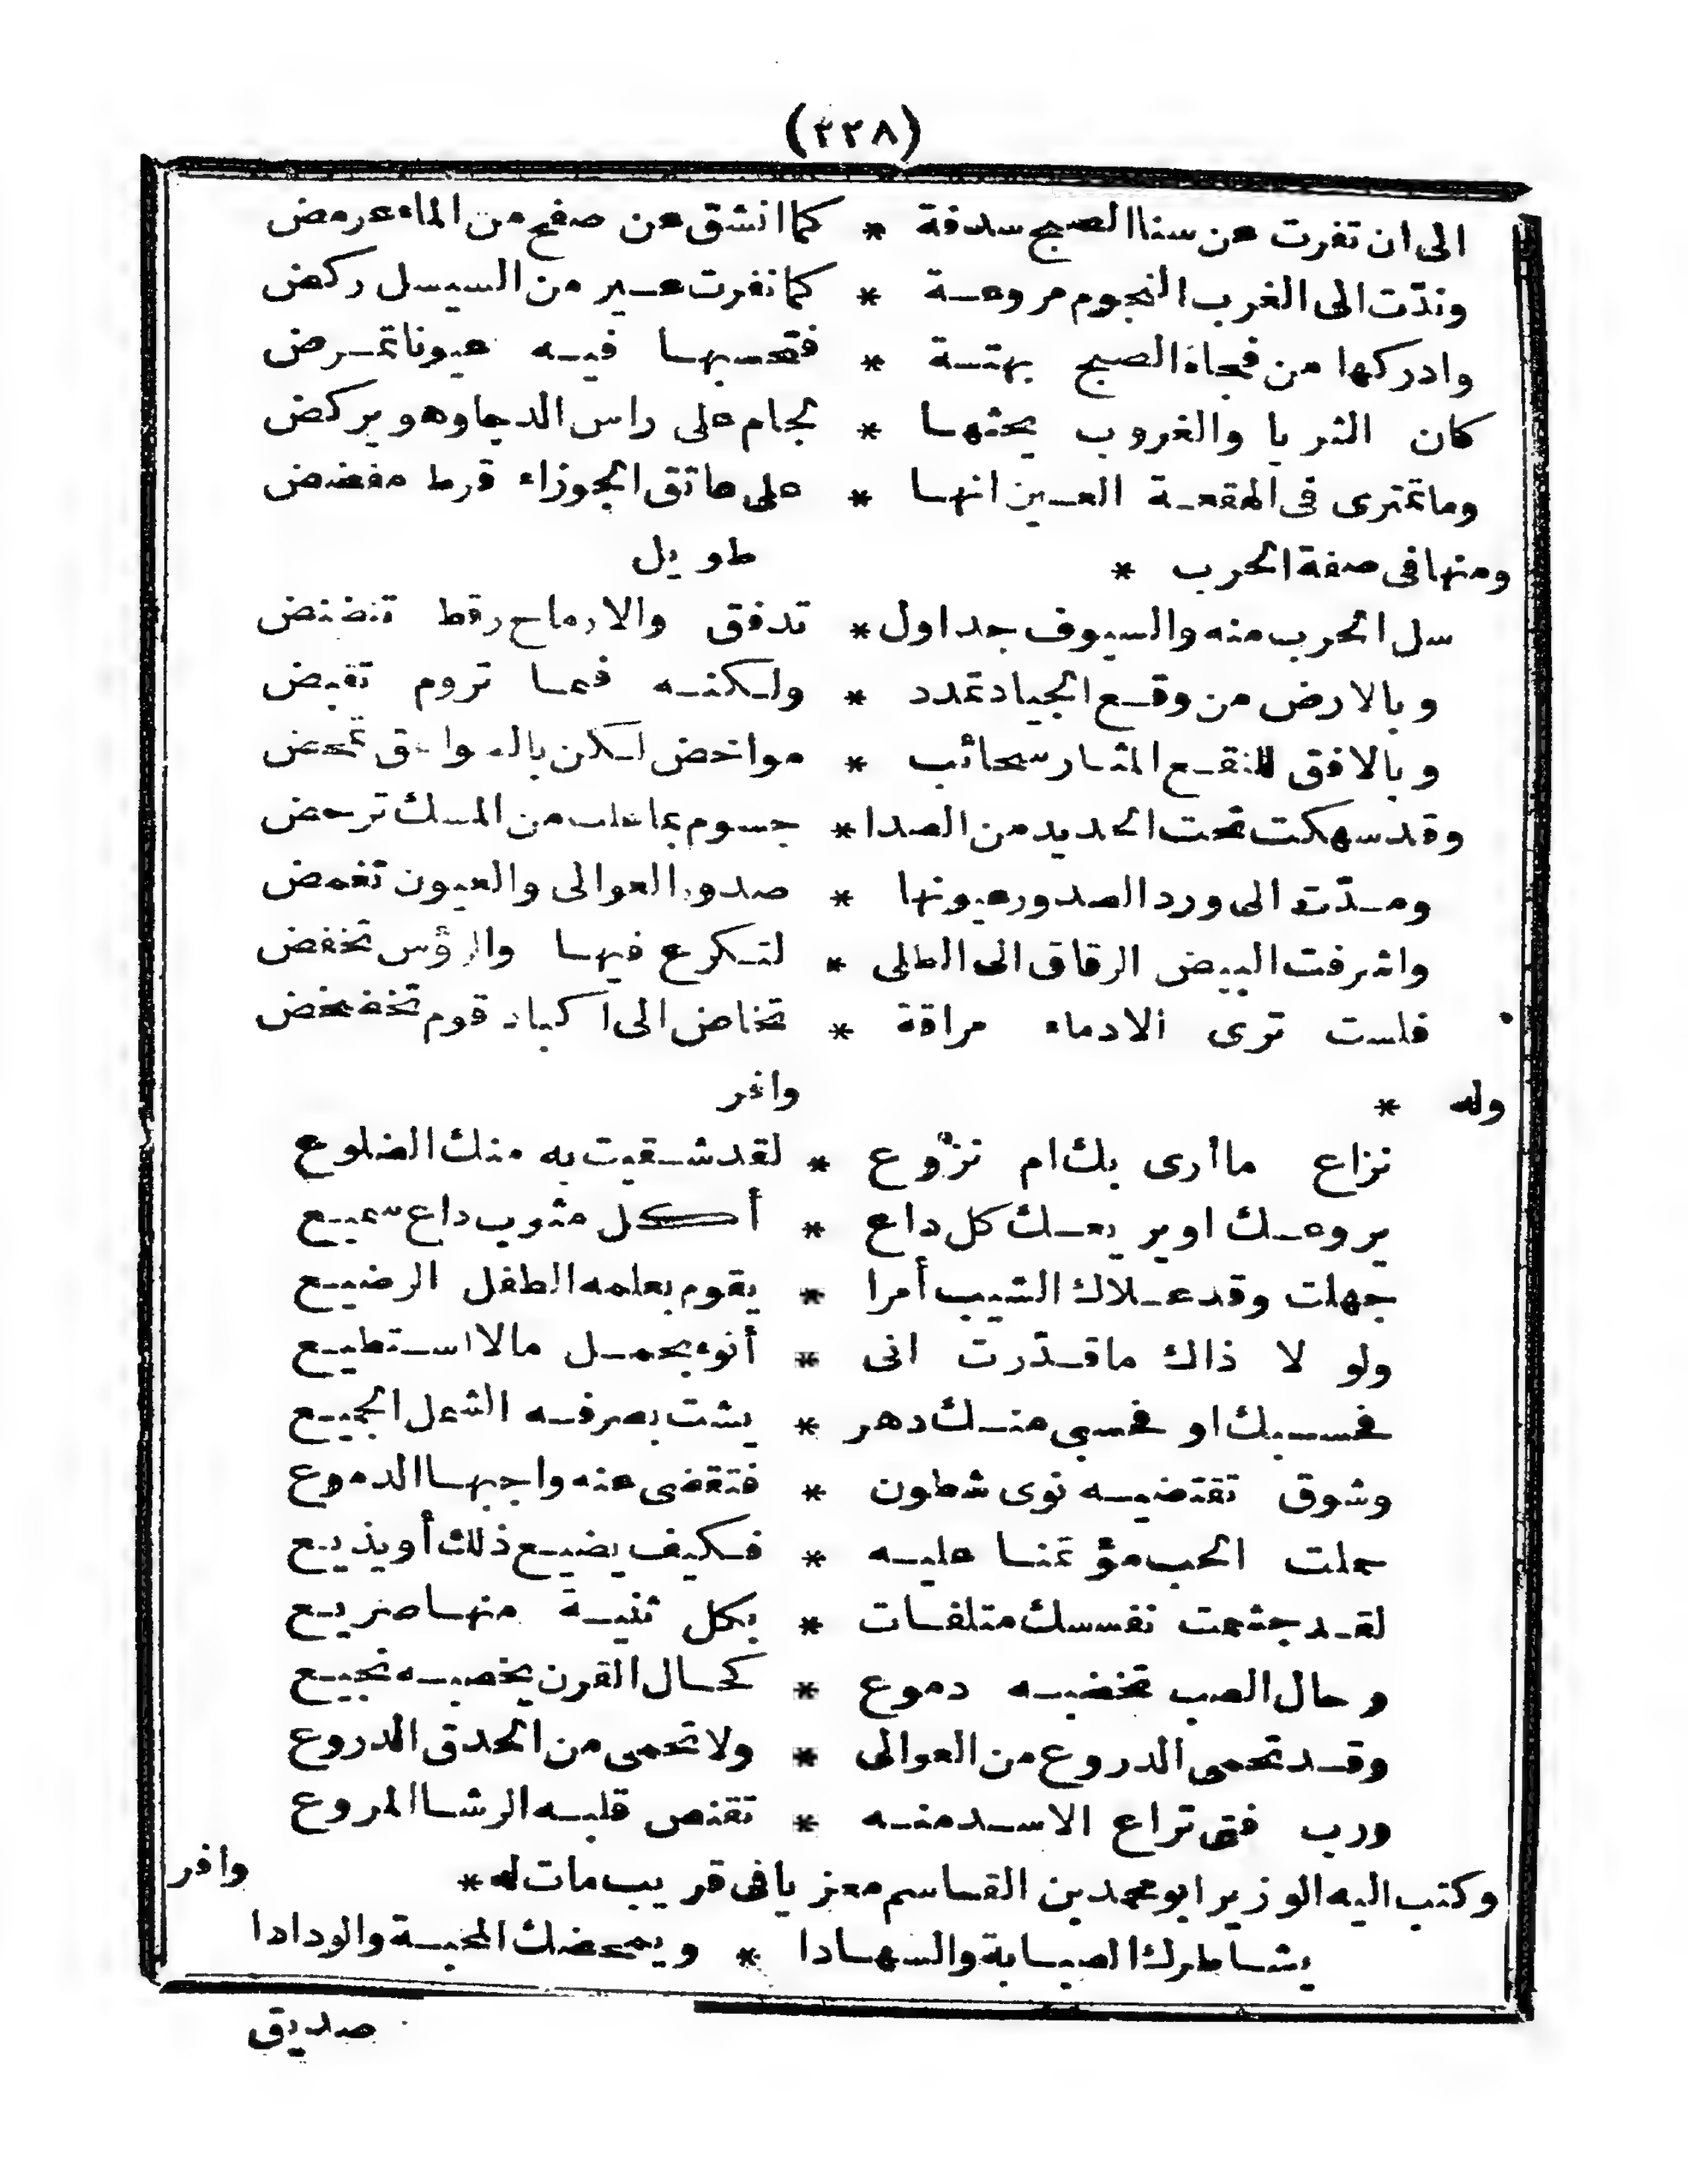 (٢٢٨)
الى ان تفرت عن سنا الصبح سدفة * كما انشق عن صفح من الماء عرمض
وندّت الى الغرب النجوم مروعة * كما نفرت عير من السيسل ركض
وادركها من فجاة الصبح بهتة * فتحسبها فيه عيونا تمرض
كان الثريا والغروب يحثها * لجام على راس الدجا وهو يركض
وما تمترى فى الهقعة العين انها * على عاتق الجوزاء قرط مفضض
ومنها فى صفة الحرب * طويل
سل الحرب منه والسيوف جداول * تدفق والارماح رقط تنضنض
وبالارض من وقع الجياد تمدد * ولكنه فما تروم تقبض
وبالافق للنقع المثار سحائب * مواخض لكن بالصواعق تمخض
وقد سهكت تحت الحديد من الصدا * جسوم بما علت من المسك ترحض
ومدّت الى ورد الصدور عيونها * صدور العوالى والعيون تغمض
واشرفت البيض الرقاق الى الطلى * لتكرع فيها والرؤس تخفض
فلست ترى الا دماء مراقة * تخاض الى اكباد قوم تخضخض
وله * وافر
نزاع ما أرى بك ام نزوع * لقد شقيت به منك الضلوع
يروعك او يريعك كل داع * أكل مثوب داع سميع
جهلت وقد علاك الشيب أمرا * يقوم بعلمه الطفل الرضيع
ولو لا ذاك ما قدّرت انى * أنوء بحمل مالا استطيع
فحسبك او فحسبى منك دهر * يشت بصرفه الشمل الجميع
وشوق تقتضيه نوى شطون * فتقضى عنه واجبها الدموع
حملت الحب مؤتمنا عليه * فكيف يضيع ذلك أو يذيع
لقد جشمت نفسك متلفات * بكل ثنية منها صريع
وحال الصب تخضبه دموع * كحال القرن يخضبه نجيع
وقد تحمى الدروع من العوالى * ولا تحمى من الحدق الدروع
ورب فتى تراع الاسد منه * تقنص قلبه الرشا المروع
وكتب اليه الوزير ابو محمد بن القاسم معزيا فى قريب مات له * وافر
يشاطرك الصبابة والسهادا * ويمحضك المحبة والودادا
صديق